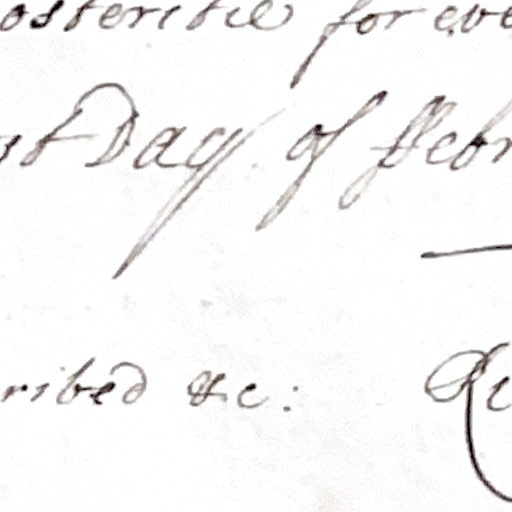 osteritie for eve
st Day of ffebr
ribed &c: Ri